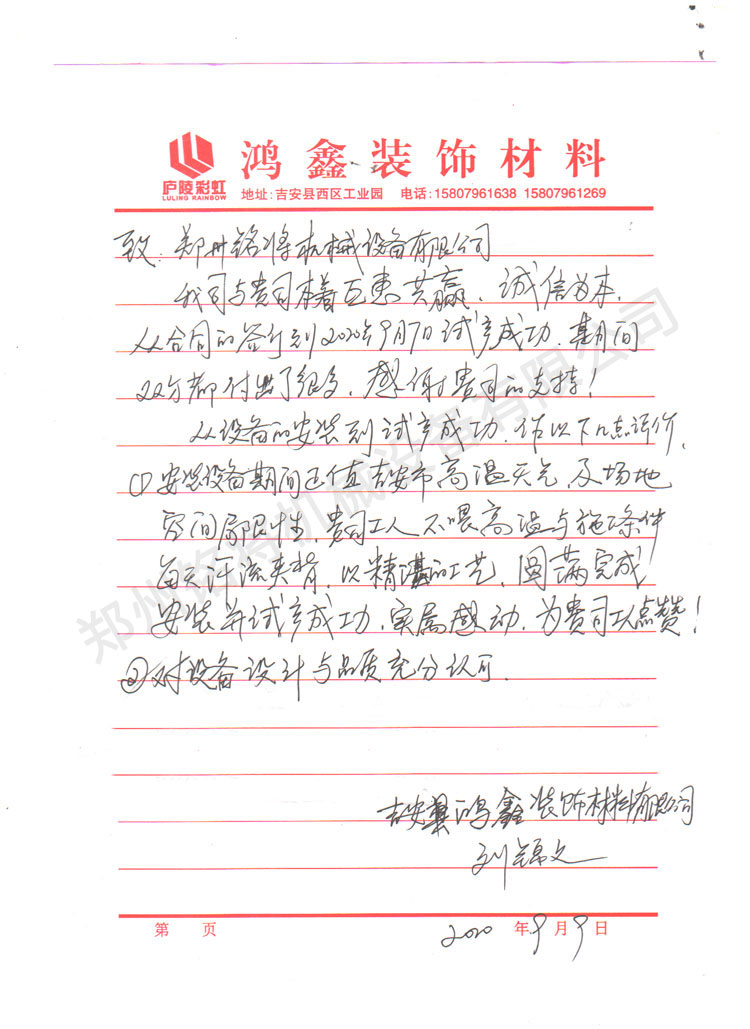 鸿鑫装饰材料
庐陵彩虹
LULING RAINBOW
地址:吉安县西区工业园 电话:15807961638 15807961269
致:郑州铭将机械设备有限公司
我司与贵司本着互惠共赢、诚信为本,
从合同的签订到2020年9月7日试产成功,期间
双方都付出了很多,感谢贵司的支持!
从设备的安装到试产成功,作以下几点评价,
①安装设备期间正值吉安市高温天气及场地
空间局限性,贵司工人不畏高温与施条件
每天汗流夹背,以精湛的工艺,圆满完成
安装并试产成功,实属感动,为贵司工人点赞!
②对设备设计与品质充分认可.
吉安县鸿鑫装饰材料有限公司
刘锦文
第 页 2020年9月9日
郑州铭将机械设备有限公司